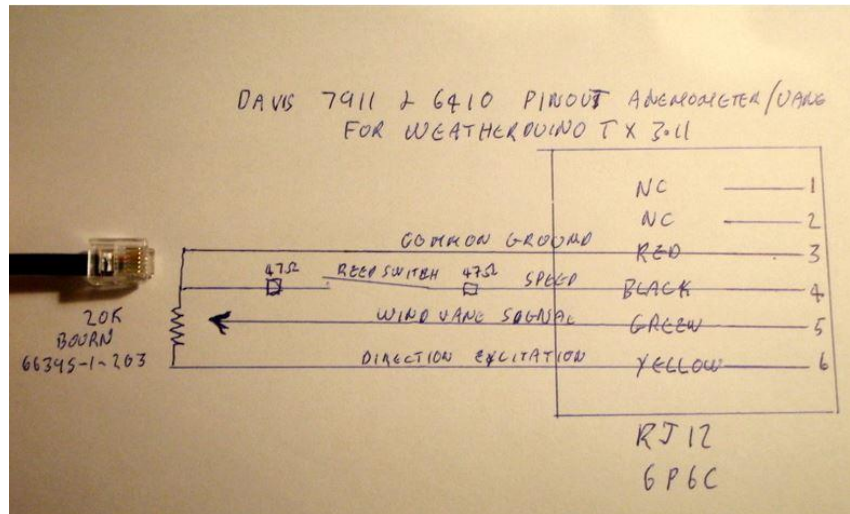 DAVIS 7911 & 6410 PINOUT ANEMOMETER/VANE
FOR WEATHERDUINO TX 3.11
NC 1
NC 2
COMMON GROUND RED 3
47Ω REED SWITCH 47Ω SPEED BLACK 4
WIND VANE SIGNAL GREEN 5
DIRECTION EXCITATION YELLOW 6
20K
BOURN
66345-1-203
RJ12
6P6C